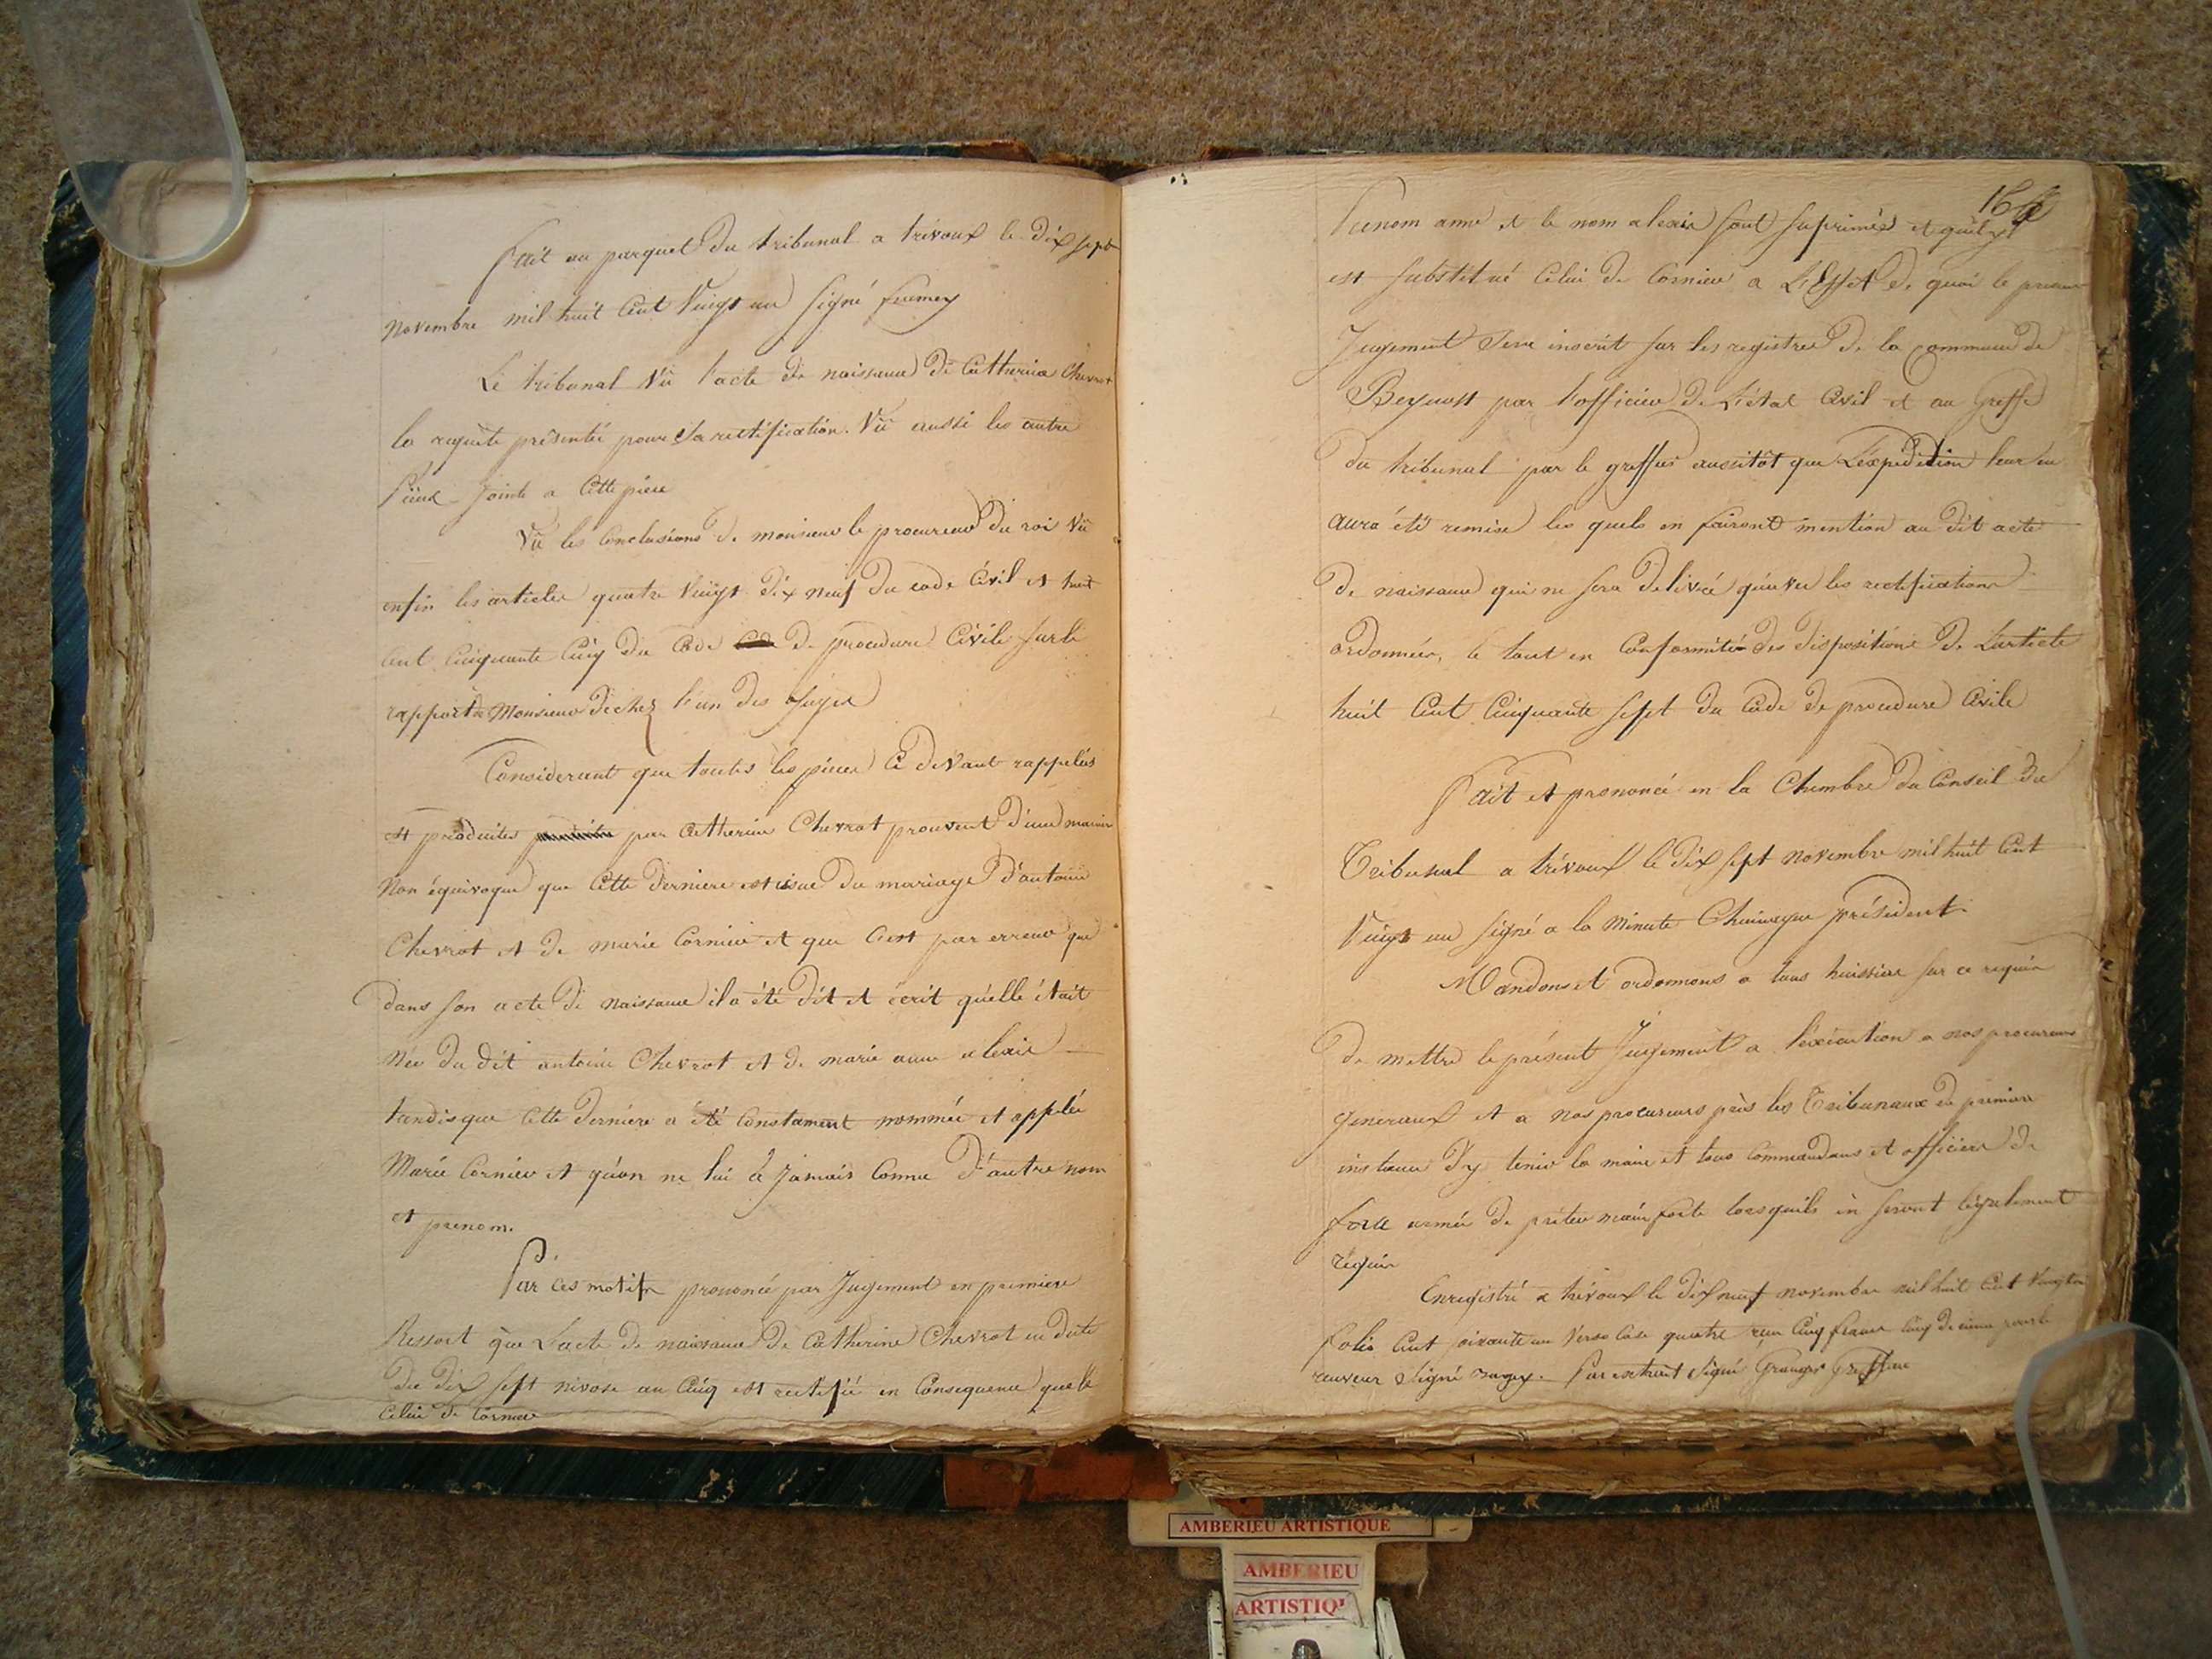 fait au parquet du tribunal a trévoux le dix sept
novembre mil huit Cent Vingt un signé
Le tribunal Vû l'acte de naissance de Catherine Chevrot
la requête présentée pour sa rectification. Vû aussi les autre
pieces jointe a Cette piece
Vû les Conclusions de monsieur le procureur du roi Vû
enfin les articles quatre Vingt dix neuf du code Civil et huit
Cent Cinquante Cinq du Code de procedure Civile sur le
rapport de Monsieur dechez l'un des Juges
Considerant que toutes les pieces Ci devant rappelées
et produites par Catherine Chevrot prouvent d'une maniere
Non équivoque que Cette derniere est issue du mariage d'antoine
Chevrot et de marie Cornier et que C'est par erreur que
dans son acte de naissance il a été dit et écrit qu'elle était
Née du dit antoine Chevrot et de marie anne alexis
tandisque Cette derniere a été Constament nommée et appelée
Marie Cornier et qu'on ne lui a jamais Connu d'autre nom
et prenom.
Par ces motifs prononcé par Jugement en premiere
Ressort que L'acte de naissance de Catherine Chevrot en date
du dix sept nivose an Cinq est rectifié en Consequence que le
Celui de Cornier
164
Prenom anne et le nom alexis sont suprimés et qu'il y
est substitué Celui de Cornier a L'Effet de quoi le présent
Jugement sera inscrit sur les registres de la Commune de
Beynost par l'officier de L'état Civil et au Greffe
du tribunal par le greffier aussitôt que L'éxpedition leur en
aura été remise les quels en fairont mention au dit acte
de naissance qui ne sera délivré qu'avec les rectifications
ordonnées, le tout en Conformité des dispositions de L'article
huit Cent Cinquante sept du Code de procedure Civile
Fait et prononcé en la Chambre du Conseil du
Tribunal a trévoux le dix sept novembre mil huit Cent
Vingt un signé a la Minute président.
Mandons et ordonnons a tous huissiers sur ce requis
de mettre le présent Jugement a l'éxécution a nos procureurs
generaux et a nos procureurs près les Tribunaux de premiere
instance d'y tenir la main et tous Commandans et officiers de
force armée de prêter main forte lorsqu'ils en seront légalement
requis
Enregistré a trévoux le dix neuf novembre mil huit Cent Vingt un
folio Cent soixante un Verso Case quatre reçu Cinq francs Cinq
signé Par extrait signé Granger Greffier
AMBERIEU ARTISTIQUE
AMBERIEU
ARTISTIQ